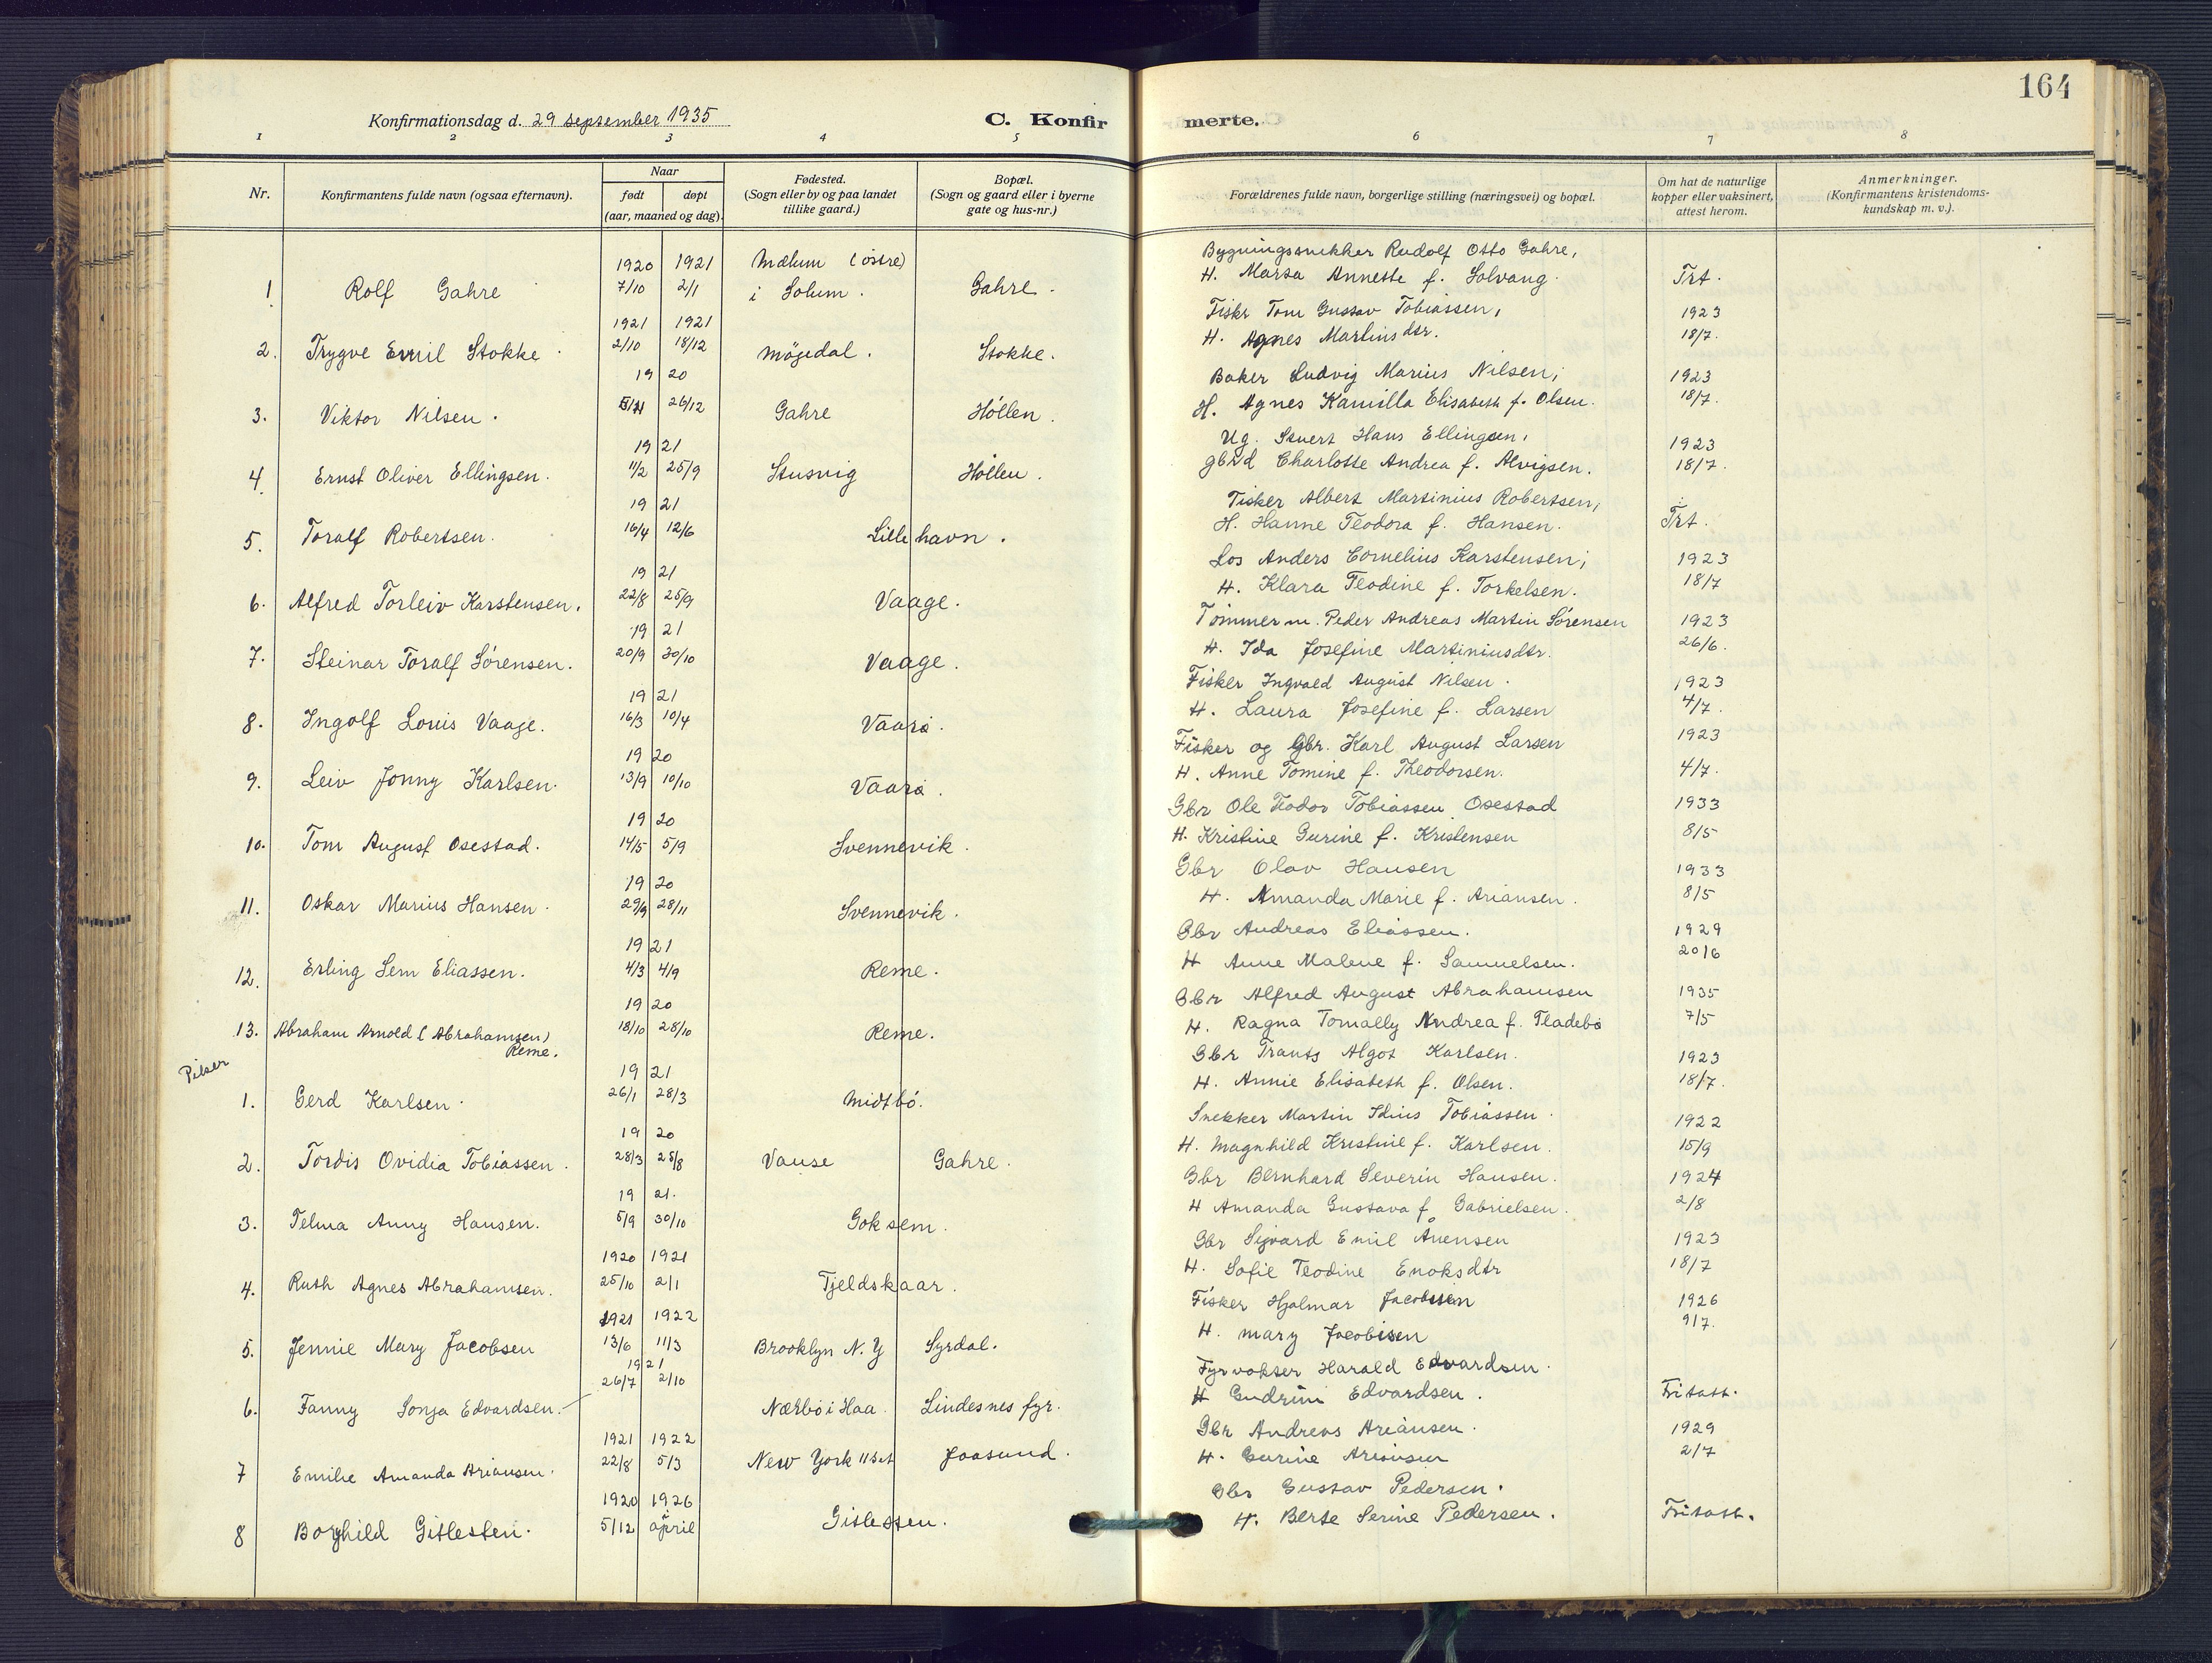 164
Konfirmationsdag d. 29 september 1935
C. Konfirmerte.
1 2 3 4 5 6 7 8
Nr.
Konfirmantens fulde navn (ogsaa efternavn).
Naar
født døpt
(aar, maaned og dag).
Fødested.
(Sogn eller by og paa landet
tillike gaard.)
Bopæl.
(Sogn og gaard eller i byerne
gate og hus-nr.)
Forældrenes fulde navn, borgerlige stilling (næringsvei) og bopæl.
Om hat de naturlige
kopper eller vaksinert,
attest herom.
Anmerkninger.
(Konfirmantens kristendoms-
kundskap m. v.).
1920 1921 Mælum (østre) Bygningssnekker Rudolf Otto Gahre,
1 Rolf Gahre 7/10 2/1 i Solum. Gahre. H. Marta Annette f. Solvang. Trt.
1921 1921 Fisker Tom Gustav Tobiassen, 1923
2. Trygve Emil Stokke 2/10 18/12 Møgedal. Stokke. H. Agnes Martinsdtr. 18/7.
19 20 Baker Ludvig Marius Nilsen, 1923
3. Viktor Nilsen. 26/12 Gahre Høllen. H. Agnes Kamilla Elisabeth f. Olsen. 18/7.
19 21 Ug. Stuert Hans Ellingsen, 1923
4. Ernst Oliver Ellingsen. 11/2 25/9 Stusvig Høllen. gbrd Charlotte Andrea f. Alvigsen. 18/7.
19 21 Fisker Albert Martinius Robertsen,
5. Toralf Robertsen. 16/4 12/6 Lillehavn. H. Hanne Teodora f. Hansen. Trt.
19 21 Los Anders Cornelius Karstensen, 1923
6. Alfred Torleiv Karstensen. 22/8 25/9 Vaage. H. Klara Teodine f. Torkelsen. 18/7
19 21 Tømmerm. Peder Andreas Martin Sørensen 1923
7. Steinar Toralf Sørensen. 20/9 30/10 Vaage. H. Ida Josefine Martiniusdtr. 26/6.
19 21 Fisker Ingvald August Nilsen. 1923
8. Ingolf Louis Vaage. 16/3 10/4 Vaarø. H. Laura Josefine f. Larsen 4/7.
19 20 Fisker og Gbr. Karl August Larsen 1923
9. Leiv Jonny Karlsen. 13/9 10/10 Vaarø. H. Anne Tomine f. Theodorsen. 4/7.
19 20 Gbr Ole Teodor Tobiassen Osestad 1933
10. Tom August Osestad. 14/5 5/9 Svennevik. H. Kristine Gurine f. Kristensen 8/5
19 20 Gbr Olav Hansen 1933
11. Oskar Marius Hansen. 29/9 28/11 Svennevik. H. Amanda Marie f. Ariansen. 8/5
19 21 Gbr Andreas Eliassen. 1929
12. Erling Sem Eliassen. 4/3 4/9 Reme. H Anne Malene f. Samuelsen. 20/6
19 20 Gbr Alfred August Abrahamsen 1935
13. Abraham Arnold (Abrahamsen) Reme. 18/10 28/10 Reme. H. Ragna Tomally Andrea f. Fladebø 7/5
Piker
19 21 Gbr Frants Algot Karlsen. 1923
1. Gerd Karlsen. 26/1 28/3 Midtbø. H. Annie Elisabeth f. Olsen. 18/7.
19 20 Snekker Martin Idius Tobiassen. 1922
2. Tordis Ovidia Tobiassen. 28/3 25/8 Vanse Gahre. H. Magnhild Kristine f. Karlsen. 15/9
19 21. Gbr Bernhard Severin Hansen. 1924
3. Telma Anny Hansen. 5/9 30/10 Goksem. H Amanda Gustava f. Gabrielsen. 2/8
1920 1921 Gbr Sigvard Emil Ånensen 1923
4. Ruth Agnes Abrahamsen. 25/10 2/1 Fjeldskaar. H. Sofie Teodine Enoksdtr 18/7
1921 1922 Fisker Hjalmar Jacobsen 1926
5. Jennie Mary Jacobsen 13/6 11/3 Brooklyn N.Y Syrdal. H. Mary Jacobsen 9/7.
1921 Fyrvokter Harald Edvardsen.
6. Fanny Sonja Edvardsen. 26/7 2/10 Nærbø i Haa. Lindesnes fyr. H Gudrun Edvardsen. Fritatt.
1921 1922 Gbr Andreas Ariansen. 1929
7 Emilie Amanda Ariansen. 22/8 5/3 New York Jaasund. H. Gurine Ariansen 2/7
1920 1926 Gbr Gustav Pedersen.
8 Borghild Gitlesten. 5/12 april Gitlesten. H. Berte Serine Pedersen. Fritatt.